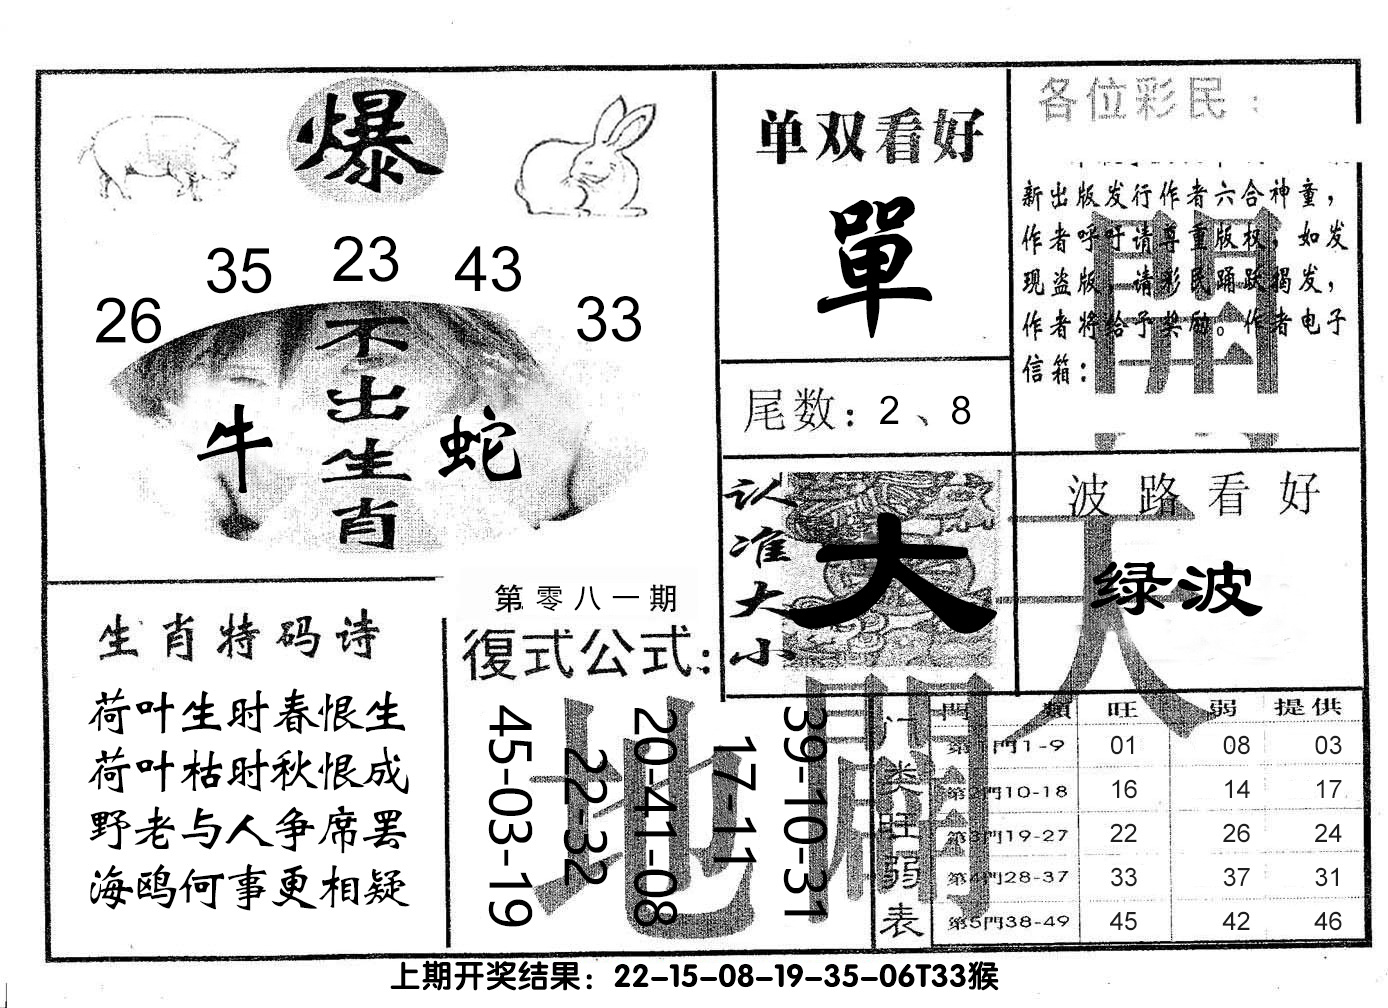 爆
26
35
23
43
33
不出生肖
牛
蛇
单双看好
單
尾数：2、8
认准大小
大
各位彩民：
新出版发行作者六合神童，
作者呼吁请尊重版权，如发
现盗版，请彩民踊跃揭发，
作者将给予奖励。作者电子
信箱：
波路看好
绿波
生肖特码诗
荷叶生时春恨生
荷叶枯时秋恨成
野老与人争席罢
海鸥何事更相疑
第零八一期
復式公式：
45-03-19
22-32
20-41-08
17-11
39-10-31
天
地
門类旺弱表
門類 旺 弱 提供
第1門1-9 01 08 03
第2門10-18 16 14 17
第3門19-27 22 26 24
第4門28-37 33 37 31
第5門38-49 45 42 46
上期开奖结果：22-15-08-19-35-06T33猴